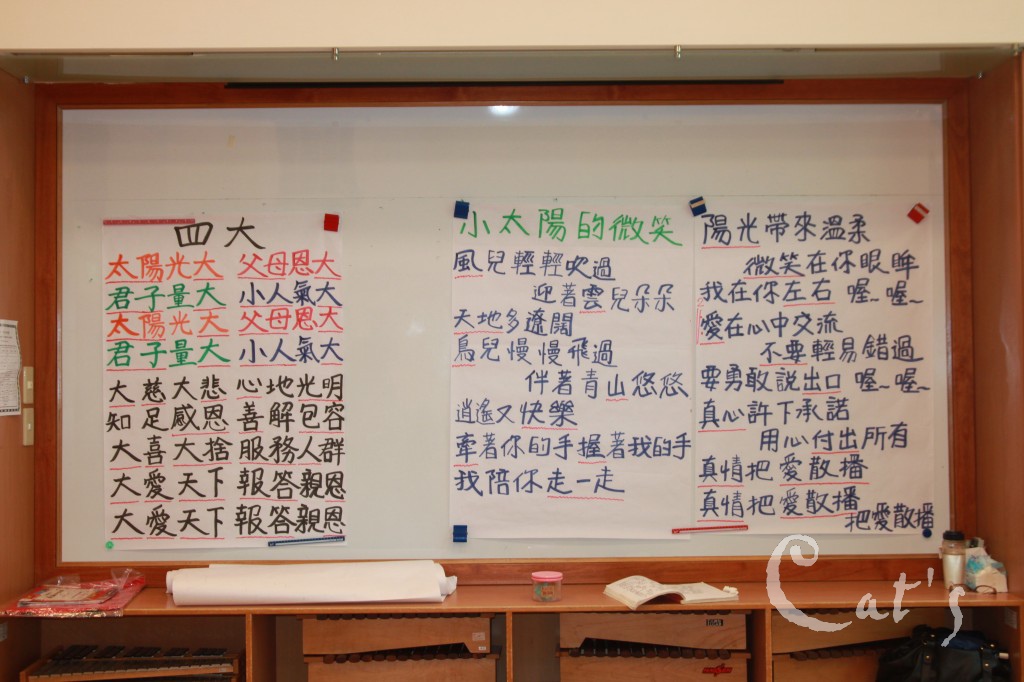 四大
太陽光大 父母恩大
君子量大 小人氣大
太陽光大 父母恩大
君子量大 小人氣大
大慈大悲 心地光明
知足感恩 善解包容
大喜大捨 服務人群
大愛天下 報答親恩
大愛天下 報答親恩
小太陽的微笑
風兒輕輕吹過
迎著雲兒朵朵
天地多遼闊
鳥兒慢慢飛過
伴著青山悠悠
逍遙又快樂
牽著你的手握著我的手
我陪你走一走
陽光帶來溫柔
微笑在你眼眸
我在你左右 喔~喔~
愛在心中交流
不要輕易錯過
要勇敢說出口 喔~喔~
真心許下承諾
用心付出所有
真情把愛散播
真情把愛散播
把愛散播
Cat's